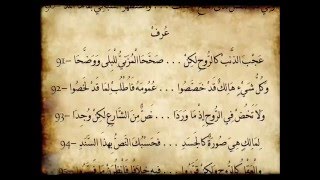 عُرِفْ
عَجْبَ الذَّنَبْ كَالرُّوحِ لَكِنْ . . . صَحَّحَا الْمُزَنِيُّ لِلْبِلَى وَوَضَّحَا -91
وَكُلُّ شَيْءٍ هَالِكٌ قَدْ خَصَّصُوا . . . عُمُومَهُ فَاطْلُبْ لِمَا قَدْ لَخَّصُوا -92
وَلَا تَخُضْ فِي الرُّوحِ إِذْ مَا وَرَدَا . . . نَصٌّ مِنَ الشَّارِعِ لَكِنْ وُجِدَا -93
لِمَالِكٍ هِيَ صُورَةٌ كَالْجَسَدِ . . . فَحَسْبُكَ النَّصُّ بِهَذَا السَّنَدِ -94